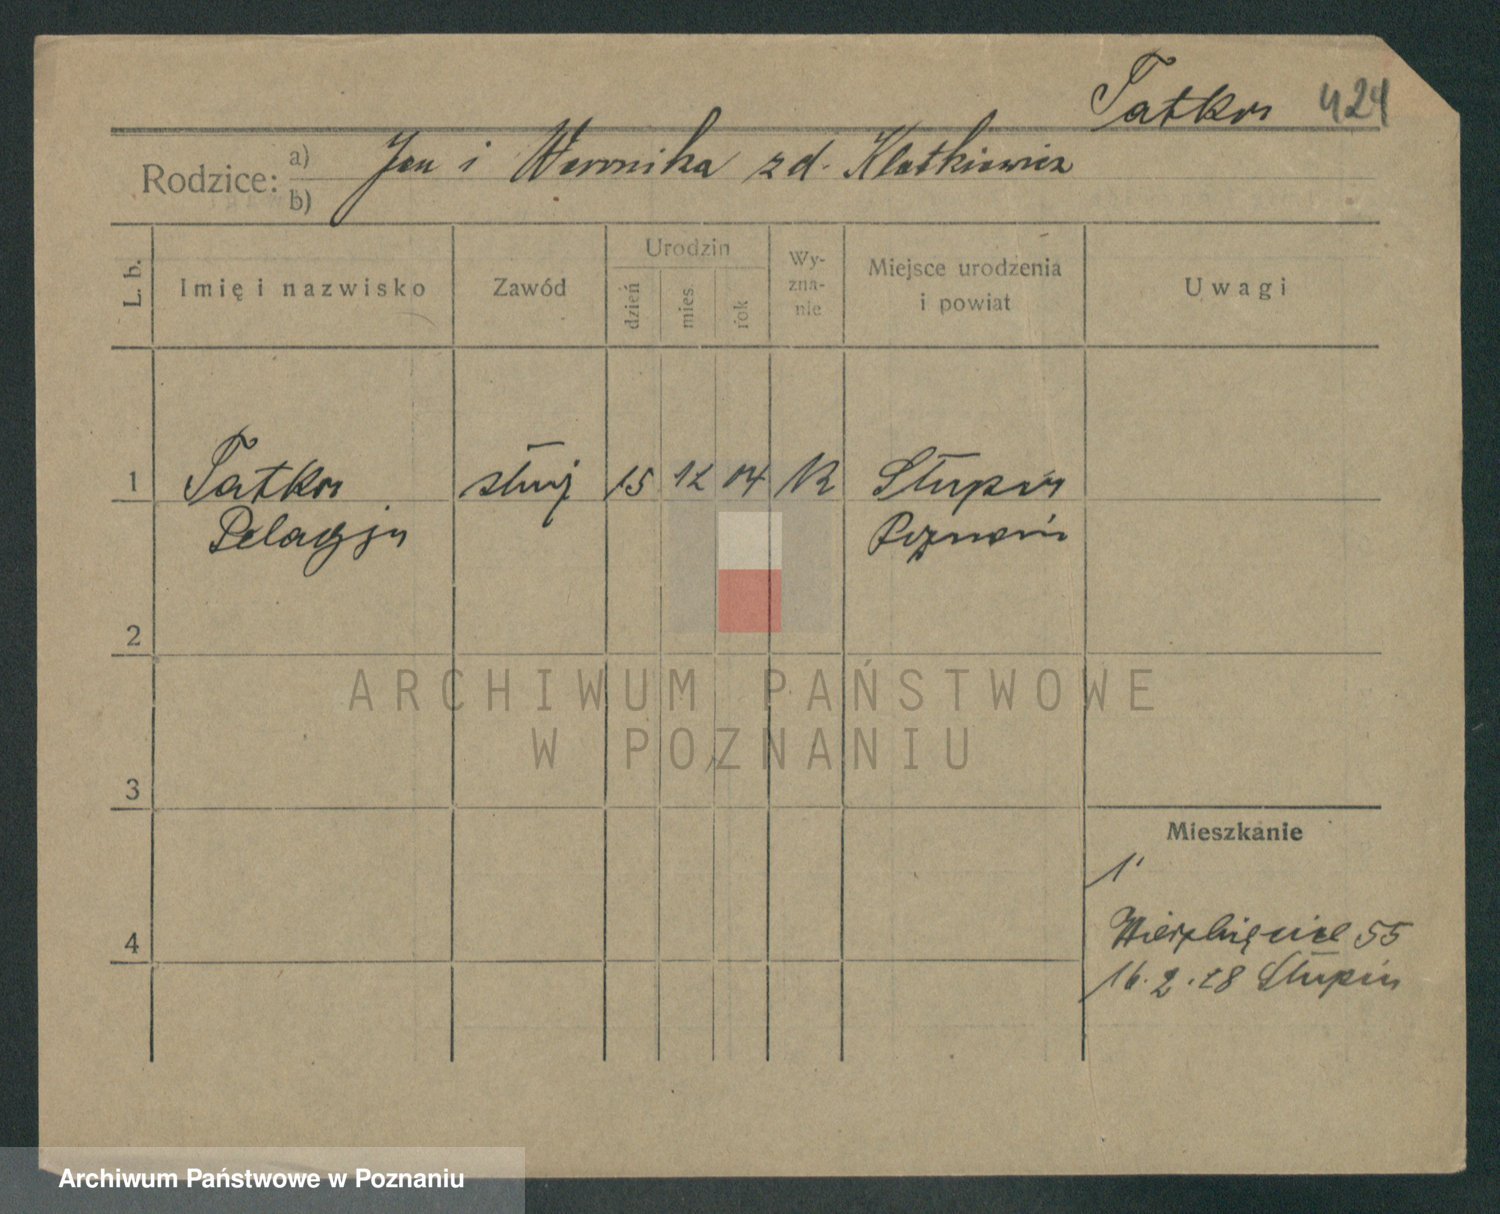 Tatka 424
Rodzice: a) b) Jan i Weronika z d. Klatkiewicz
L. b.
Imię i nazwisko
Zawód
Urodzin
dzień
mies.
rok
Wy-
zna-
nie
Miejsce urodzenia
i powiat
Uwagi
1 Tatka służ 15 12 04 K
Pelagja Poznań
2
ARCHIWUM PAŃSTWOWE
W POZNANIU
3
Mieszkanie
1
4 Wierzbięcice 55
16.2.28
Archiwum Państwowe w Poznaniu